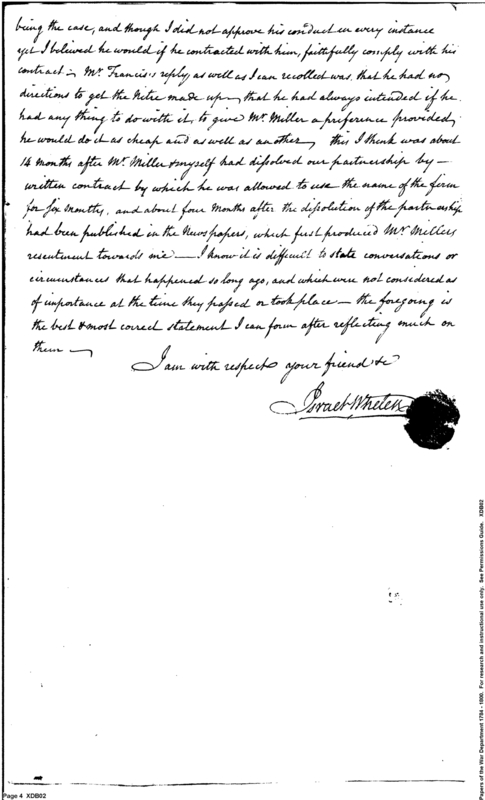 being the case, and though I did not approve his conduct in every instance
yet I believed he would if he contracted with him, faithfully comply with his
contract – Mr. Francis's reply, as well as I can recollect was, that he had no
directions to get the Nitre made up – that he had always intended if he
had any thing to do with it, to give Mr. Miller a preference provided
he would do it as cheap and as well as another, this I think was about
14 months after Mr. Miller & myself had dissolved our partnership by –
written contract by which he was allowed to use the name of the firm
for six months, and about four months after the dissolution of the partnership
had been published in the Newspapers, which first produced Mr. Millers
resentment towards me — I know it is difficult to state conversations or
circumstances that happened so long ago, and which were not considered as
of importance at the time they passed or took place – the foregoing is
the best & most correct statement I can form after reflecting much on
them —
I am with respect your friend &c
Israel Whelen
Page 4 XDB02
Papers of the War Department 1784 - 1800. For research and instructional use only. See Permissions Guide. XDB02